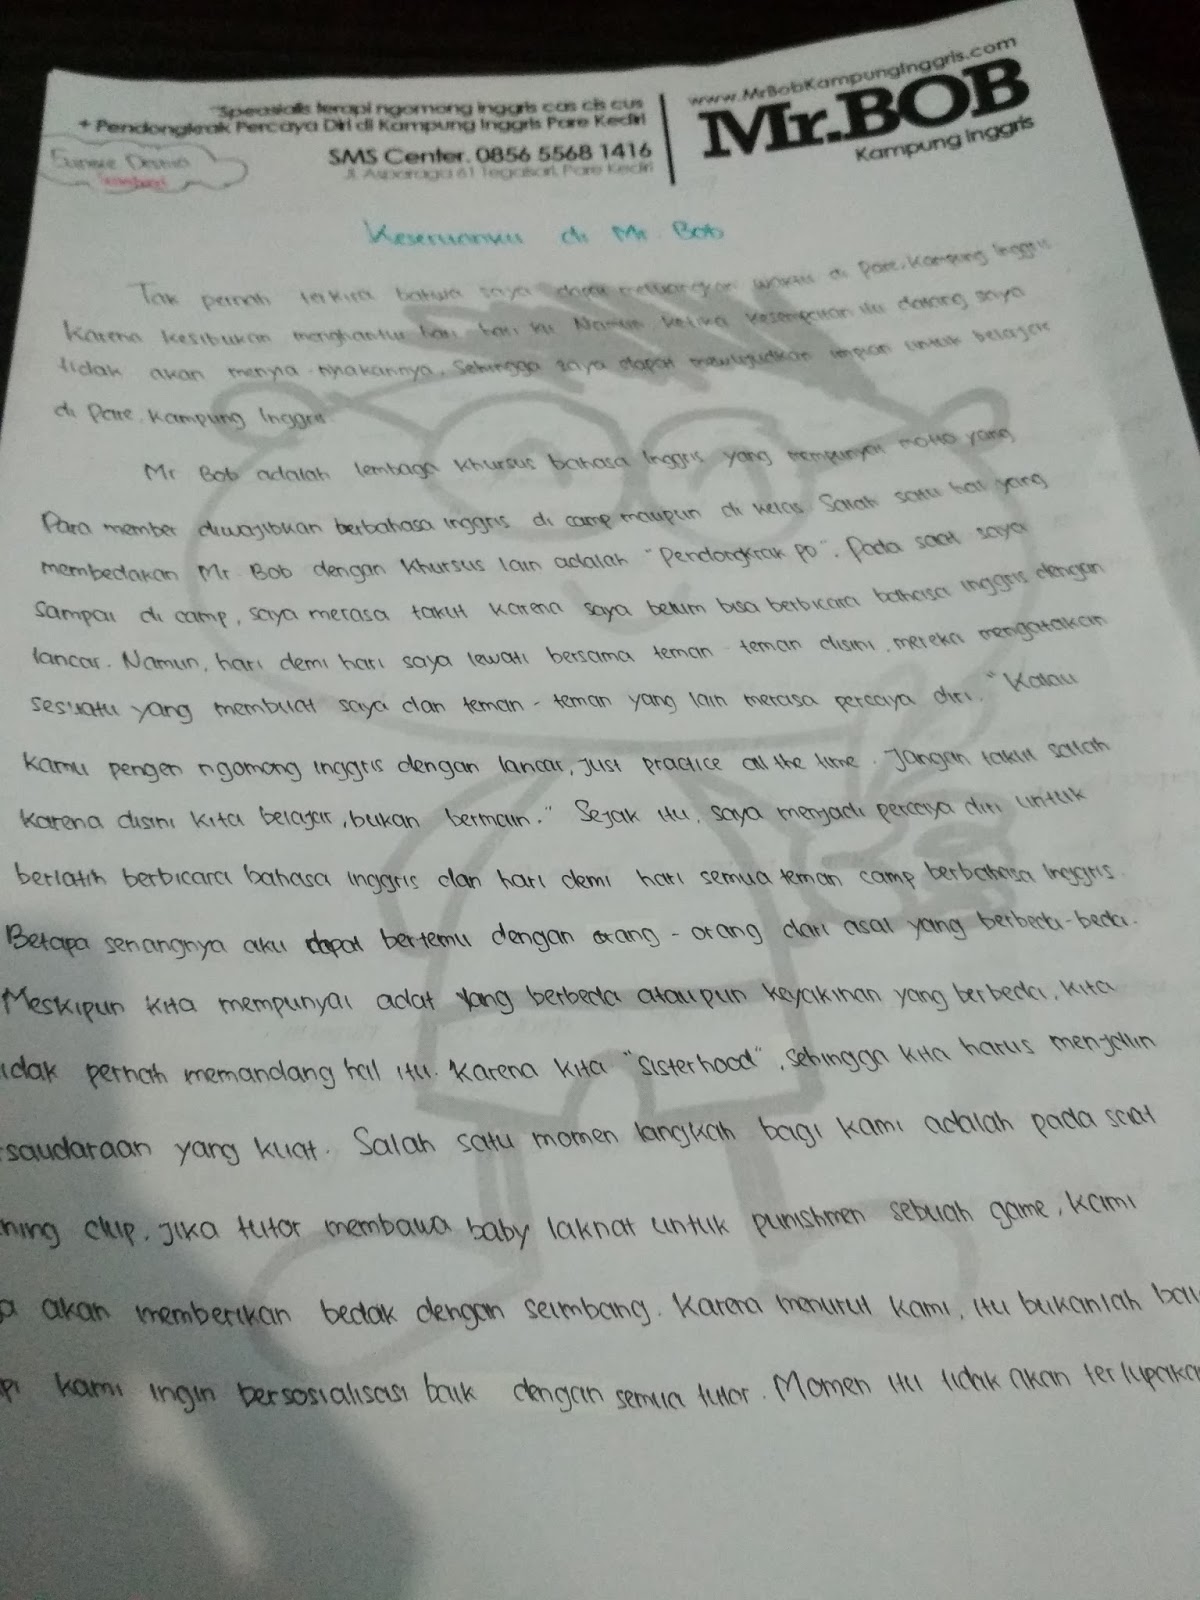 "Spesialis terapi ngomong inggris cas cis cus
+ Pendongkrak Percaya Diri di Kampung Inggris Pare Kediri
SMS Center. 0856 5568 1416
Jl. Asparaga 61 Tegalsari, Pare Kediri
www.MrBobKampungInggris.com
Mr.BOB
Kampung Inggris
Keseruanku di Mr. Bob
Tak pernah terkira bahwa saya dapat meluangkan waktu di Pare, Kampung Inggris
Karena kesibukan menghantui hari hari ku. Namun, ketika kesempatan itu datang saya
tidak akan menyia-nyiakannya. Sehingga saya dapat mewujudkan impian untuk belajar
di Pare, Kampung Inggris.
Mr Bob adalah lembaga khursus bahasa Inggris yang mempunyai motto yang
Para member diwajibkan berbahasa inggris di camp maupun di kelas. Salah satu hal yang
membedakan Mr. Bob dengan khursus lain adalah "Pendongkrak PD". Pada saat saya
sampai di camp, saya merasa takut karena saya belum bisa berbicara bahasa inggris dengan
lancar. Namun, hari demi hari saya lewati bersama teman-teman disini, mereka mengatakan
sesuatu yang membuat saya dan teman-teman yang lain merasa percaya diri. "Kalau
kamu pengen ngomong inggris dengan lancar, just practice all the time. Jangan takut salah
karena disini kita belajar, bukan bermain." Sejak itu, saya menjadi percaya diri untuk
berlatih berbicara bahasa inggris dan hari demi hari semua teman camp berbahasa Inggris.
Betapa senangnya aku dapat bertemu dengan orang-orang dari asal yang berbeda-beda.
Meskipun kita mempunyai adat yang berbeda ataupun keyakinan yang berbeda, kita
idak pernah memandang hal itu. Karena kita "Sisterhood", sehingga kita harus menjalin
rsaudaraan yang kuat. Salah satu momen langkah bagi kami adalah pada saat
ning clup, jika tutor membawa baby laknat untuk punishmen sebuah game, kami
a akan memberikan bedak dengan seimbang. Karena menurut kami, itu bukanlah
pi kami ingin bersosialisasi baik dengan semua tutor. Momen itu tidak akan terlupakan